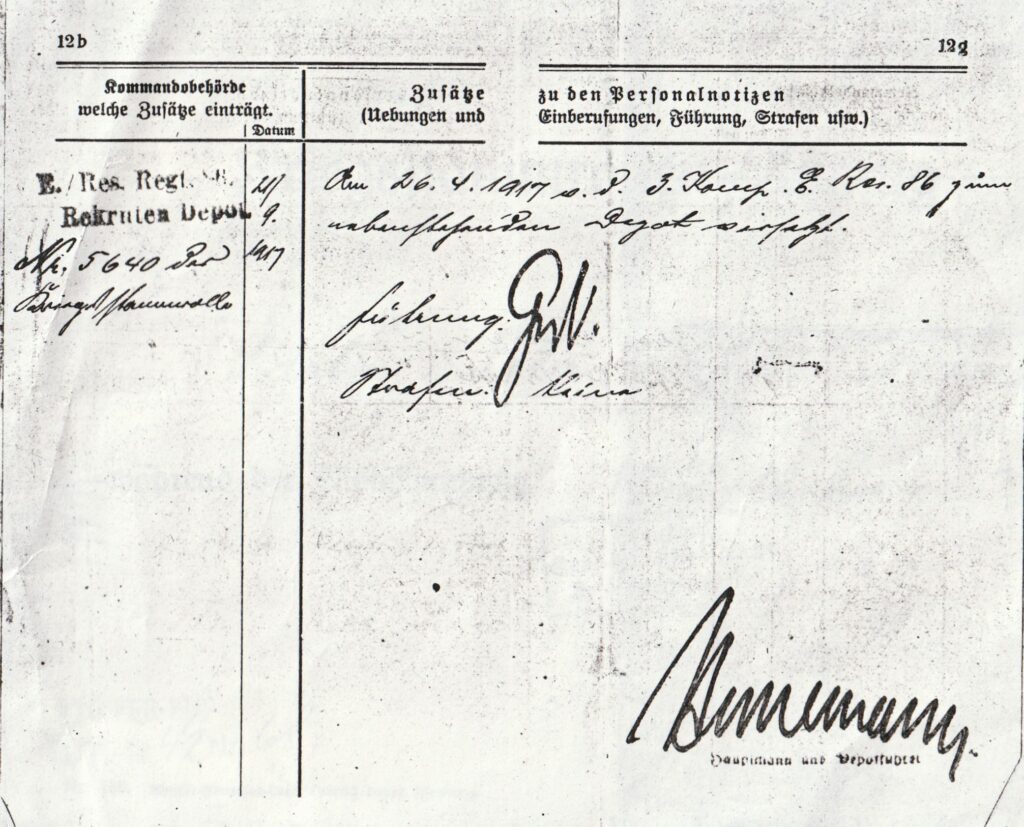 12b
12g
Kommandobehörde
welche Zusätze einträgt.
Datum
Zusätze
(Uebungen und
zu den Personalnotizen
Einberufungen, Führung, Strafen usw.)
E./Res. Regt.
Rekruten Depot
Nr. 5640 der
Kriegsstammrolle
21/
9.
1917
Am 26. 4. 1917 v. d. 3. Komp. E. Res. 86 zum
nebenstehenden Depot versetzt.
Führung. Gut.
Strafen. Keine
Hauptmann und Depotführer